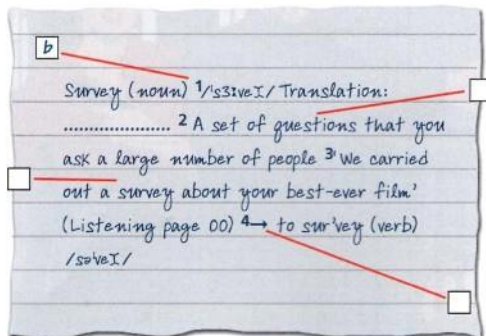 b
Survey (noun) ¹/'sɜːveɪ/ Translation:
..................... ² A set of questions that you
ask a large number of people ³'We carried
out a survey about your best-ever film'
(Listening page 00) ⁴→ to sur'vey (verb)
/sə'veɪ/